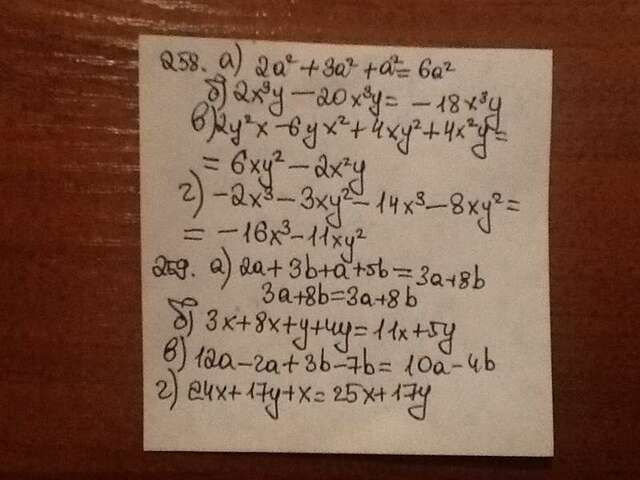 258. а) 2a²+3a²+a²=6a²
б) 2x³y−20x³y=−18x³y
в) 2y²x−6yx²+4xy²+4x²y=
=6xy²−2x²y
г) −2x³−3xy²−14x³−8xy²=
=−16x³−11xy²
259. а) 2a+3b+a+5b=3a+8b
3a+8b=3a+8b
б) 3x+8x+y+4y=11x+5y
в) 12a−2a+3b−7b=10a−4b
г) 24x+17y+x=25x+17y